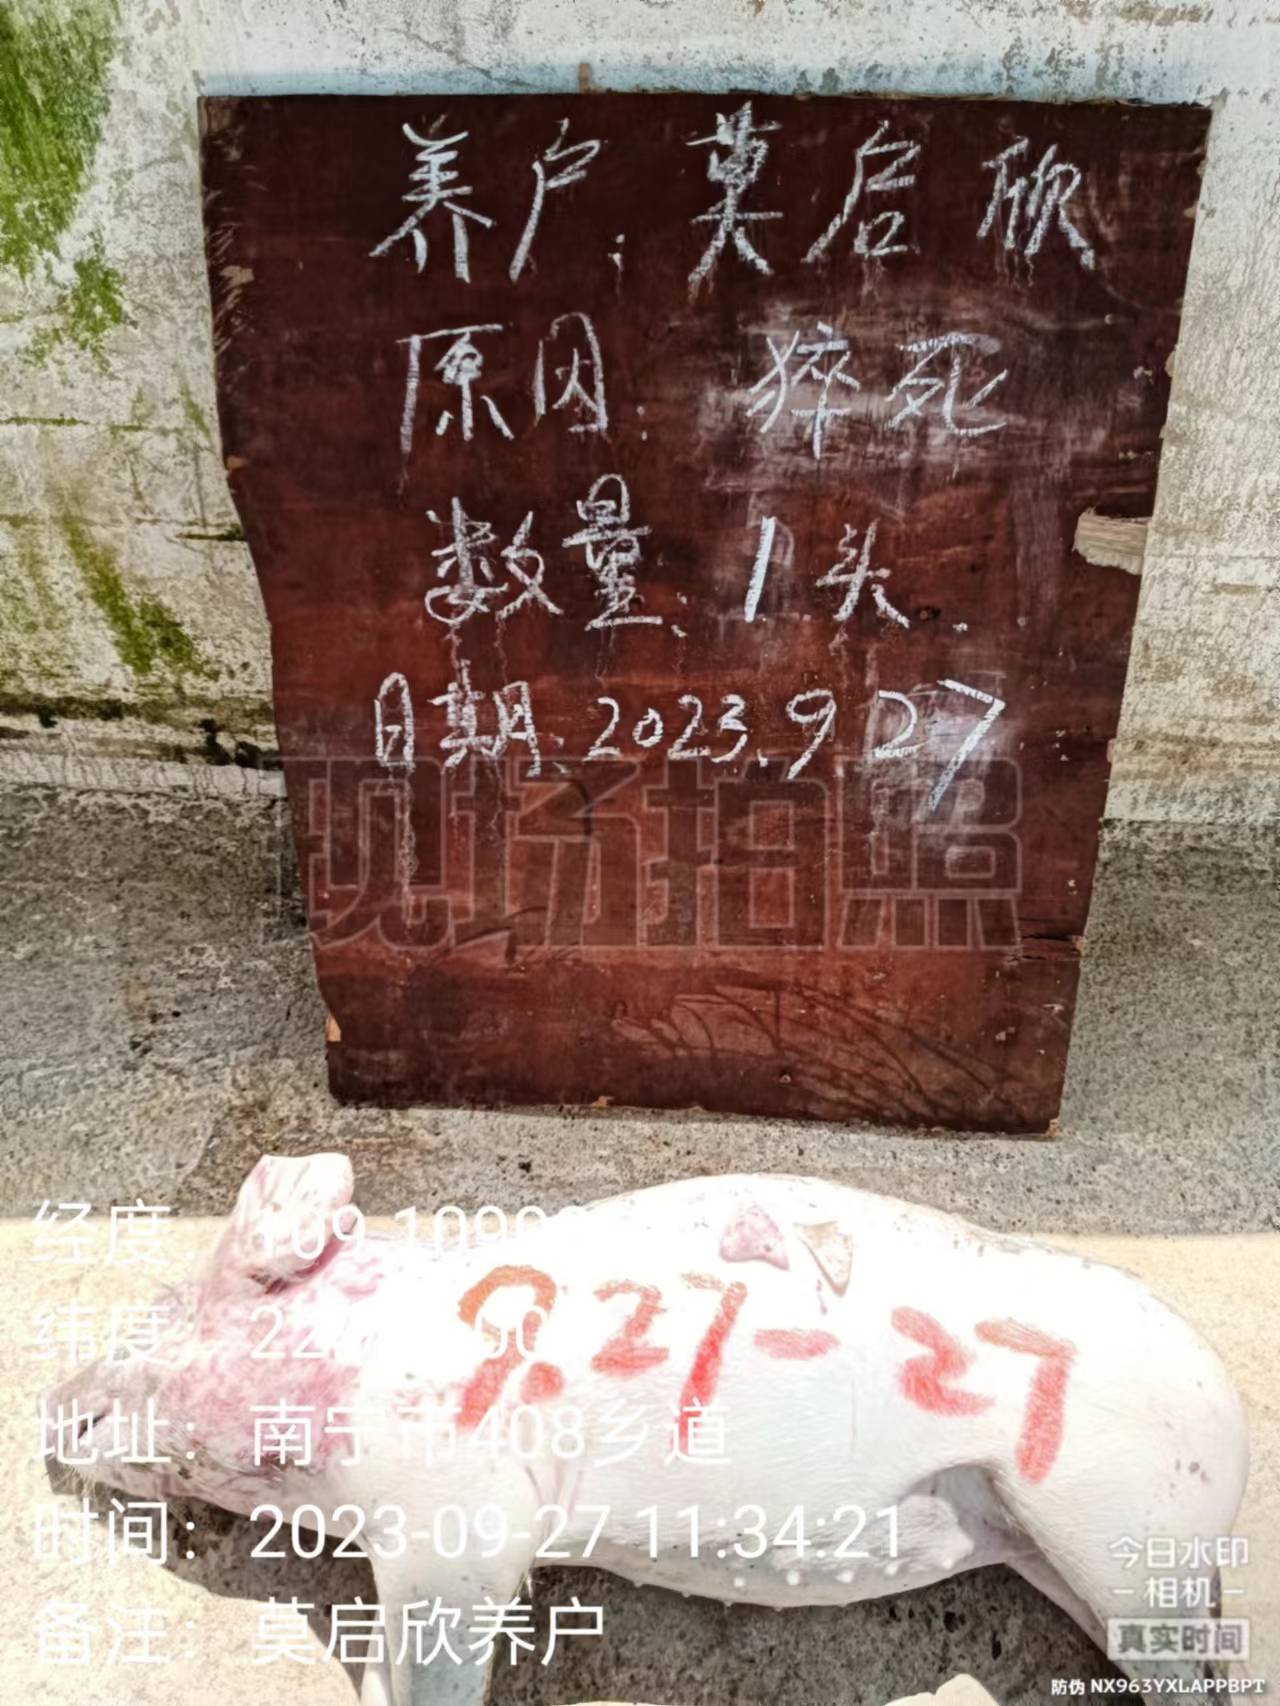 养户:莫启欣
原因:猝死
数量:1头.
日期:2023.9 27
现场拍照
9.27-27
经度: 109.1099
纬度: 22
地址: 南宁市408乡道
时间: 2023-09-27 11:34:21
备注: 莫启欣养户
今日水印
-相机-
真实时间
防伪 NX963YXLAPPBPT